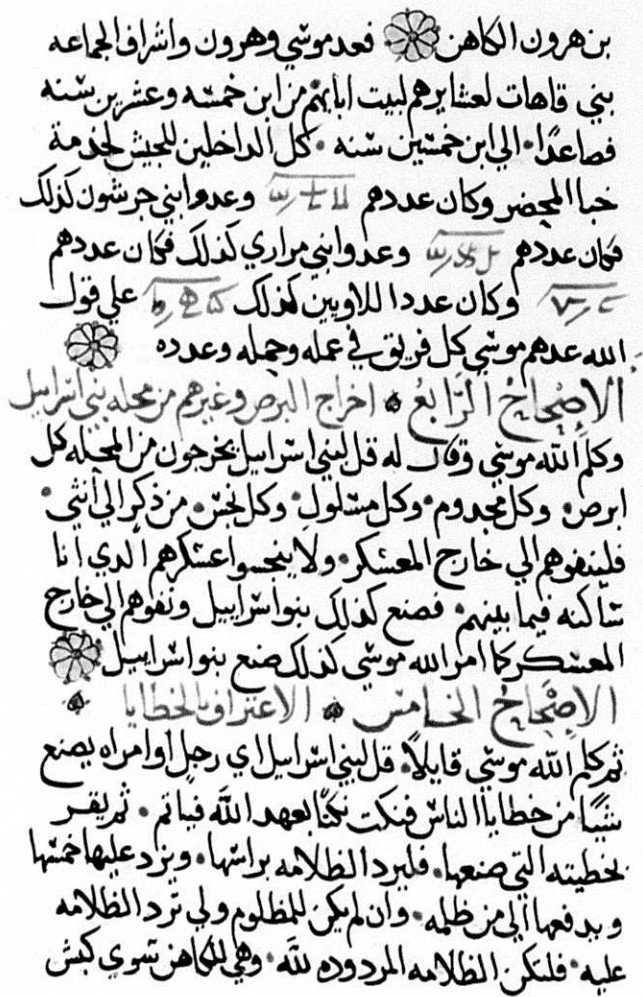 بن هرون الكاهن فعد موسي وهرون واشراف الجماعه
بني قاهات لعشايرهم لبيت ابايهم من ابن خمسه وعشرين سنه
فصاعدًا الي ابن خمسين سنه كل الداخلين للجيش لخدمة
خبا المحضر وكان عددهم وعدوا بني جرشون كذلك
فكان عددهم وعدوا بني مراري كذلك فكان عددهم
وكان عدد اللاويين كذلك علي قول
الله عدهم موسي كل فريق في عمله وحمله وعدده
الإصْحاحُ الرّابعُ اخراج البرص وغيرهم من محله بني اسراييل
وكلم الله موسي وقال له قل لبني اسراييل يخرجون من المحله كل
ابرص وكل مجدوم وكل مسلول وكل نجس من ذكر الي انثي
فلينفوهم الي خارج المعسكر ولا ينجسوا عسكرهم الدي انا
ساكنه فيما بينهم فصنع كذلك بنوا اسراييل ونفوهم الي خارج
المعسكر كما امر الله موسي كذلك صنع بنوا اسراييل
الإصْحاحُ الخامس الاعتراف بالخطايا
ثم كلم الله موسي قايلاً قل لبني اسراييل اي رجل او امراه يصنع
شيًا من خطايا الناس فنكت نكتًا بعهد الله فياتم ثم يقر
بخطيته التي صنعها فليرد الظلامه براسها ويزد عليها خمسها
ويدفعها الي من ظلمه وان لم يكن للمظلوم ولي ترد الظلامه
عليه فلتكن الظلامه المردوده لله وهي للكاهن سوي كبش